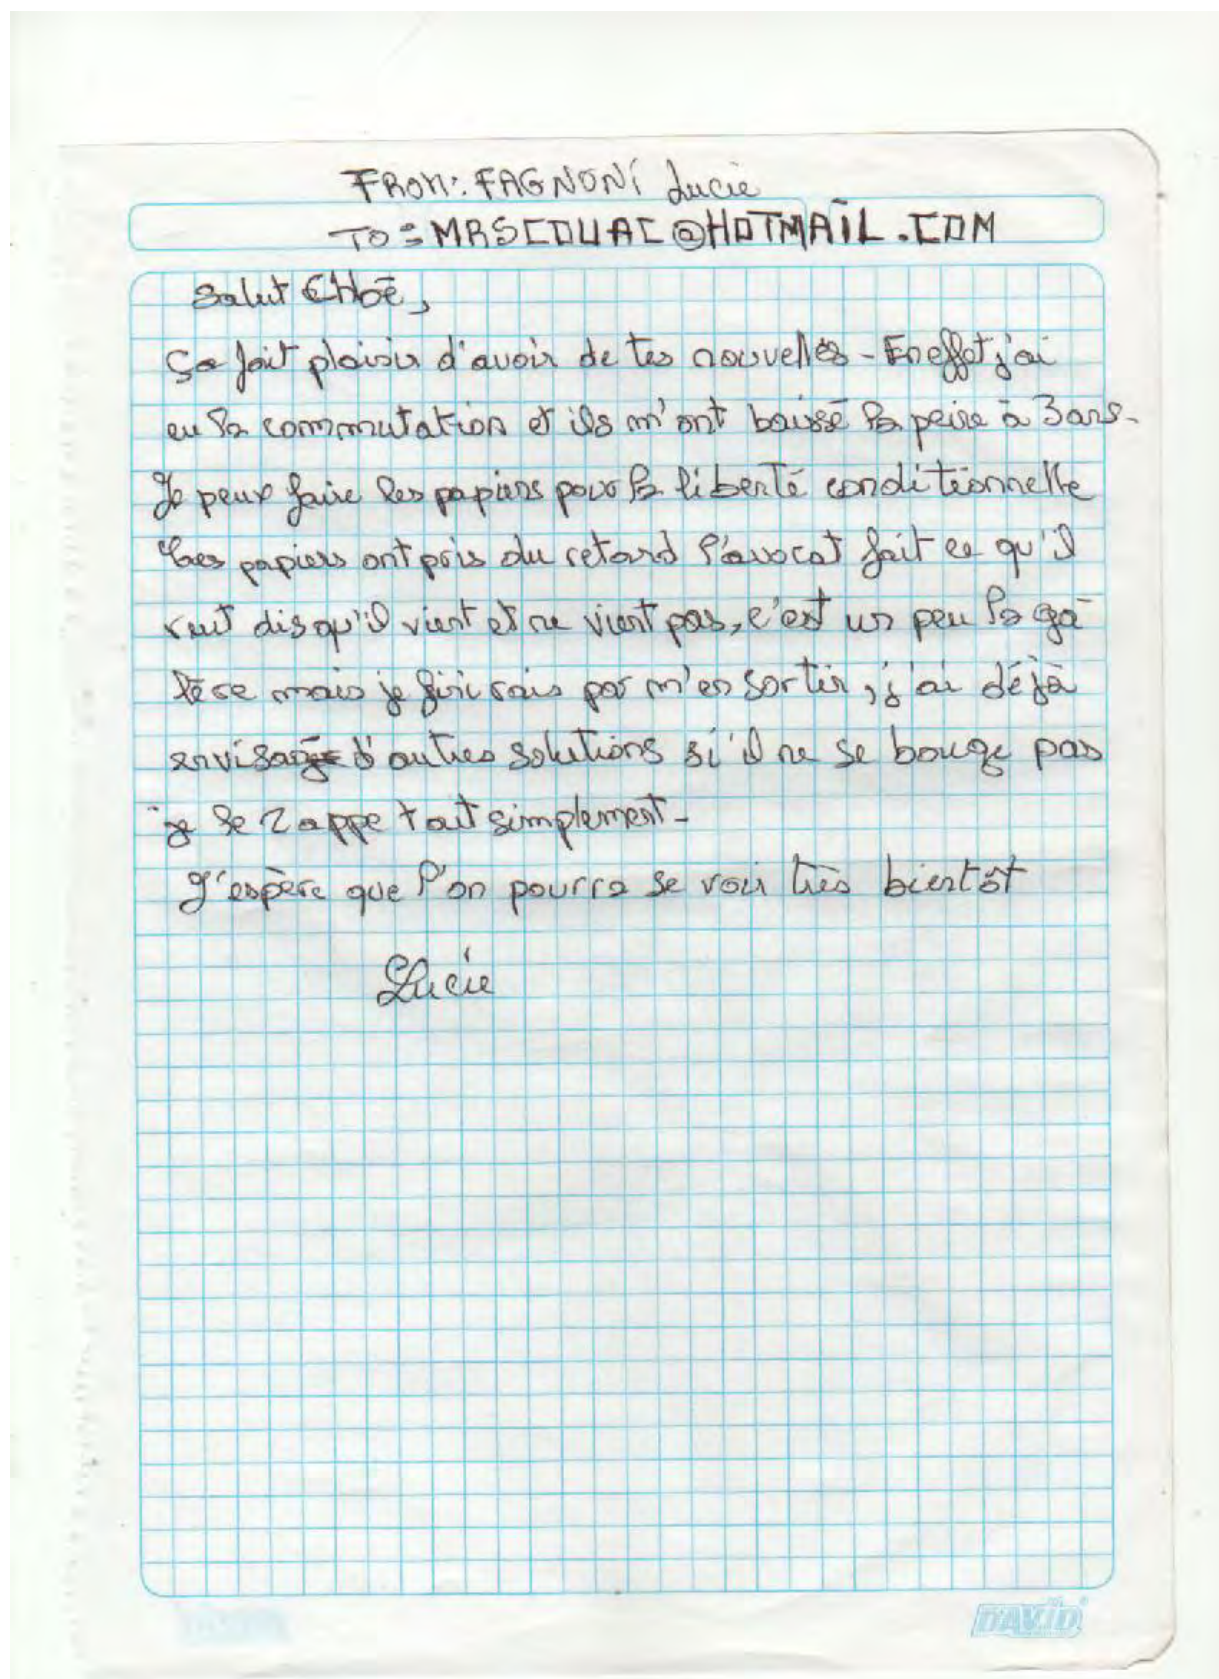 FROM: FAGNONI Lucie
TO: MRSCOUAC@HOTMAIL.COM
Salut Chloé,
ça fait plaisir d'avoir de tes nouvelles - En effet j'ai
eu la commutation et ils m'ont baissé la peine à 3 ans -
Je peux faire les papiers pour la liberté conditionnelle
les papiers ont pris du retard l'avocat fait ce qu'il
veut dis qu'il vient et ne vient pas, c'est un peu la ga
lère mais je finirais par m'en sortir, j'ai déjà
envisagé d'autres solutions si il ne se bouge pas
je le zappe tout simplement -
J'espère que l'on pourra se voir très bientôt
Lucie
DAVID